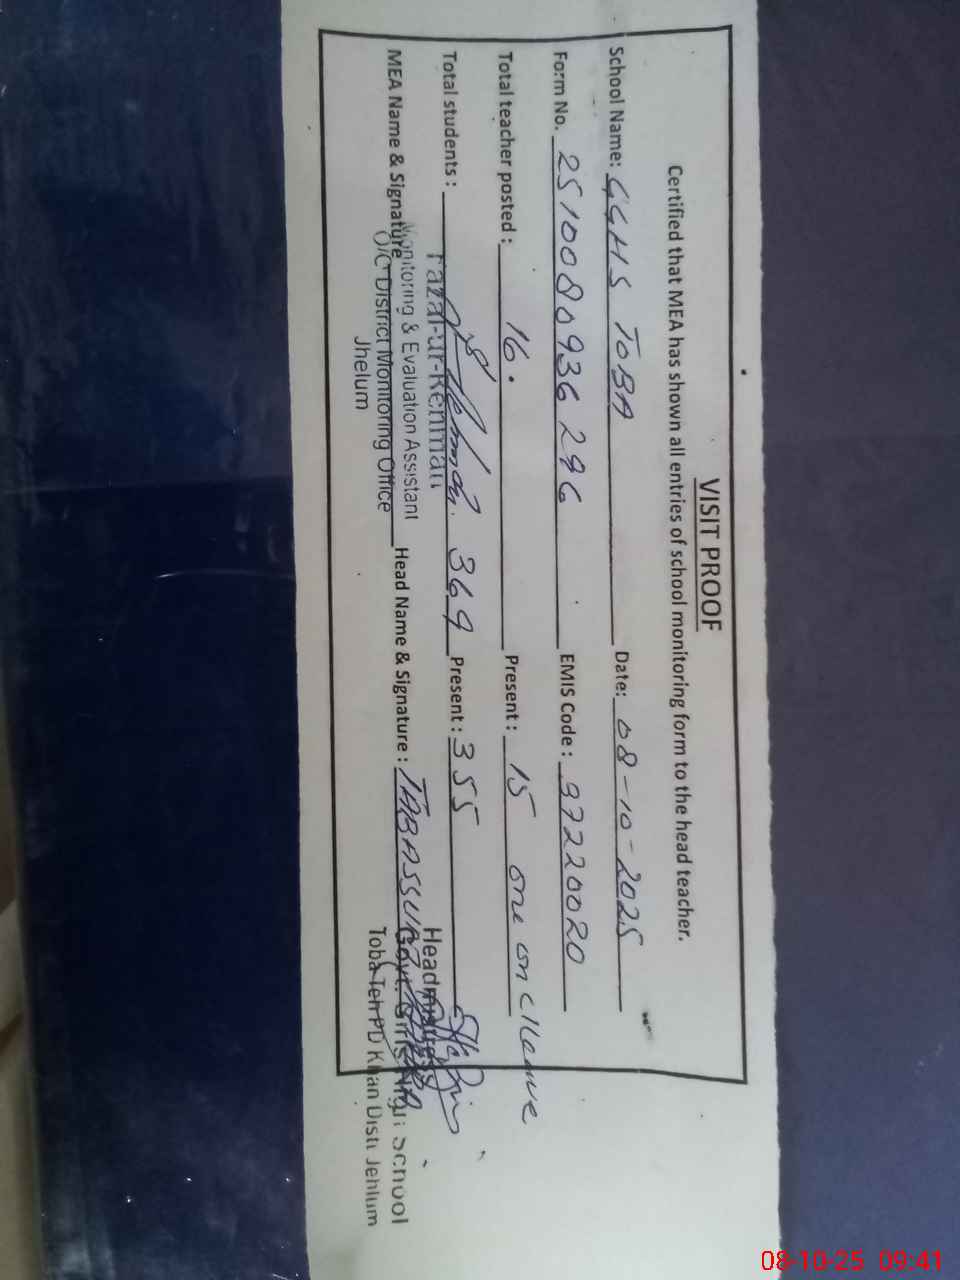 VISIT PROOF
Certified that MEA has shown all entries of school monitoring form to the head teacher.
School Name: GGHS TOBA Date: 08-10-2025
Form No. 2510080936296 EMIS Code: 37220020
Total teacher posted: 16. Present: 15 one on C/leave
Total students: 369 Present: 355
Fazal-ur-Rehman
MEA Name & Signature Head Name & Signature: TABASSUM
Monitoring & Evaluation Assistant
O/C District Monitoring Office
Jhelum
Headmistress
Govt. Girls High School
Toba Teh PD Khan Distt Jehlum
08-10-25 09:41